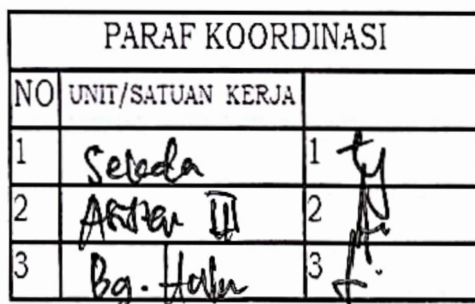 PARAF KOORDINASI
NO UNIT/SATUAN KERJA
1 Sekda 1
2 Asisten III 2
3 Bg. Hukum 3